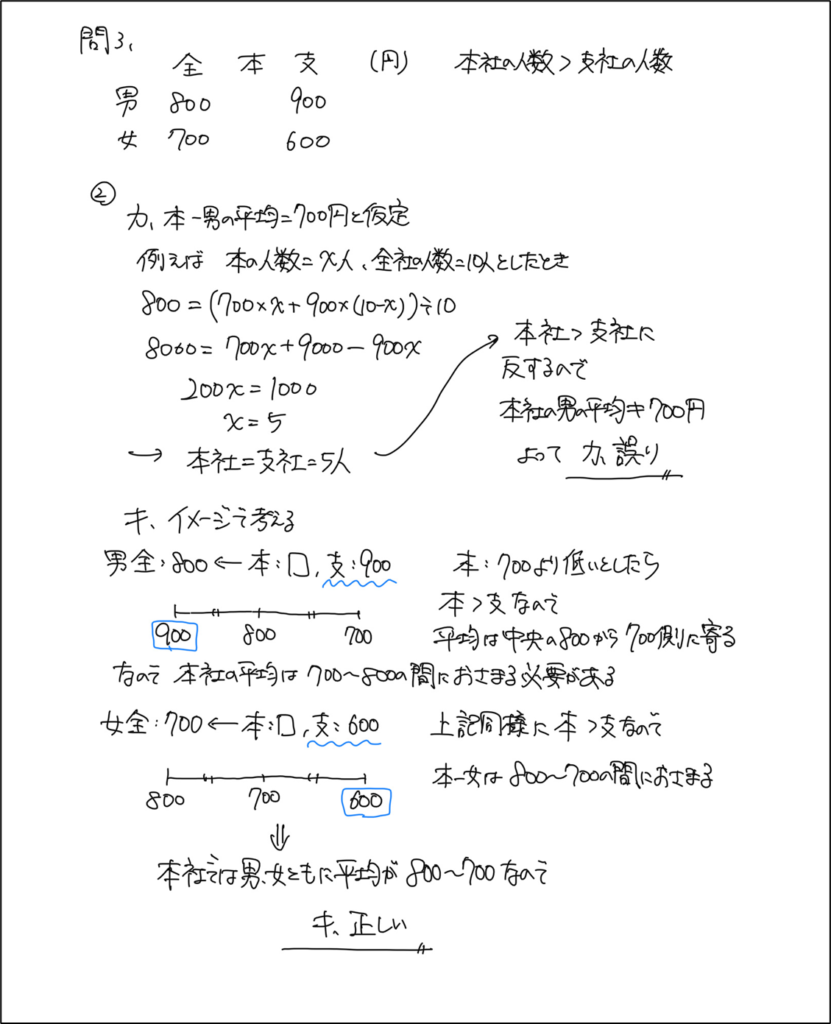 問3、
全 本 支 (円) 本社の人数>支社の人数
男 800 900
女 700 600
②
カ、本-男の平均=700円と仮定
例えば 本の人数=x人、全社の人数=10人としたとき
800=(700×x+900×(10-x))÷10
8000=700x+9000-900x
200x=1000
x=5
→ 本社=支社=5人
本社>支社に
反するので
本社の男の平均≠700円
よって カ、誤り
キ、イメージで考える
男全:800←本:□,支:900 本:700より低いとしたら
本>支なので
900 800 700 平均は中央の800から700側に寄る
なので 本社の平均は700~800の間におさまる必要がある
女全:700←本:□,支:600 上記同様に本>支なので
本-女は800~700の間におさまる
800 700 600
⇓
本社では男、女ともに平均が800~700なので
キ、正しい